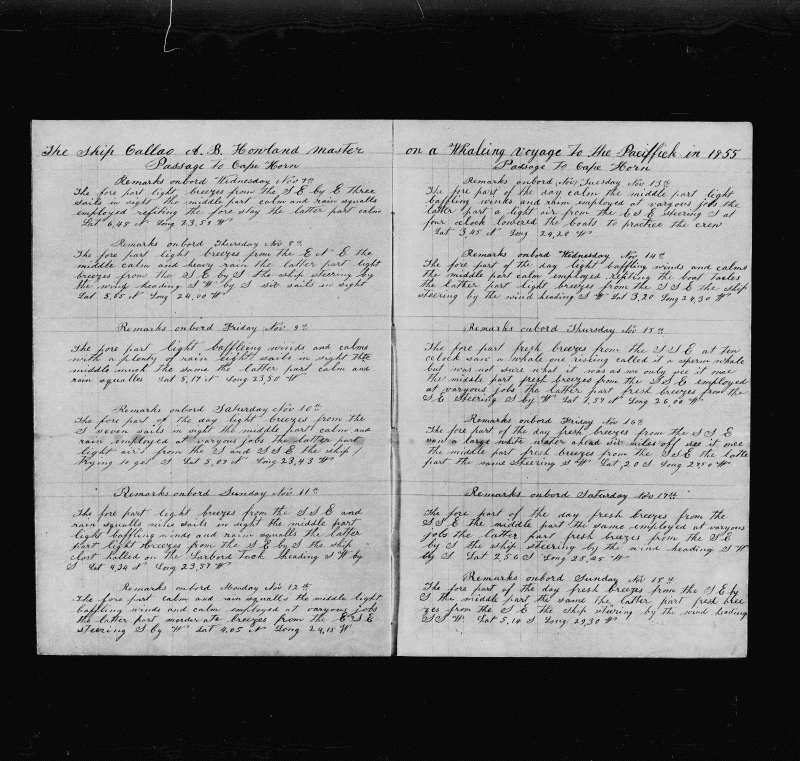 The Ship Callao A. B. Howland Master
Passage to Cape Horn
Remarks onbord Wednesday Nov 7th
The fore part light breezes from the S E by E three
sails in sight the middle part calm and rain squalls
employed refiting the fore stay the latter part calm
Lat 6,48 N Long 23,59 W
Remarks onbord Thursday Nov 8th
The fore part light breezes from the E N E the
middle calm and heavy rain the latter part light
breezes from the S E by S the ship steering by
the wind heading S W by S six sails in sight
Lat 5,55 N Long 24,00 W
Remarks onbord Friday Nov 9th
The fore part light baffling winds and calms
with a plenty of rain eight sails in sight the
middle much the same the latter part calm and
rain squalls Lat 5,17 N Long 23,50 W
Remarks onbord Saturday Nov 10th
The fore part of the day light breezes from the
S seven sails in sight the middle part calm and
rain employed at varyous jobs the latter part
light air's from the S and S S E the ship
trying to get S Lat 5,07 N Long 23,43 W
Remarks onbord Sunday Nov 11th
The fore part light breezes from the S S E and
rain squalls nine sails in sight the middle part
light baffling winds and rain squalls the latter
part light breezes from the S E by S the ship
clost halled on the Larbord tack heading S W by
S Lat 4,34 N Long 23,57 W
Remarks onbord Monday Nov 12th
The fore part calm and rain squalls the middle light
baffling winds and calm employed at varyous jobs
the latter part morderate breezes from the E S E
steering S by W Lat 4,05 N Long 24,15 W
on a Whaleing Voyage to the Paciffick in 1855
Passage to Cape Horn
Remarks onbord Nov Tuesday Nov 13th
The fore part of the day calm the middle part light
baffling winds and rain employed at varyous jobs the
latter part a light air from the E S E steering S at
four oclock lowered the boats to practice the crew
Lat 3,45 N Long 24,20 W
Remarks onbord Wednesday Nov 14th
The fore part of the day light baffling winds and calms
the middle part calm employed refiting the boat tacles
the latter part light breezes from the S S E the ship
steering by the wind heading S W Lat 3,20 Long 24,30 W
Remarks onbord Thursday Nov 15th
The fore part fresh breezes from the S S E at ten
oclock saw a whale one riseing called it a sperm whale
but was not sure what it was as we only see it once
the middle part fresh breezes from the S S E employed
at varyous jobs the latter part fresh breezes from the
S E Steering S by W Lat 1,57 N Long 26,00 W
Remarks onbord Friday Nov 16th
The fore part of the day fresh breezes from the S S E
saw a large white water ahead six miles off see it once
the middle part fresh breezes from the S S E the latte
part the same Steering S W Lat ,20 S Long 27,50 W
Remarks onbord Saturday Nov 17th
The fore part of the day fresh breezes from the
S S E the middle part the same employed at varyous
jobs the latter part fresh breezes from the S E
by S the ship steering by the wind heading S W
by S Lat 2,56 S Long 28,25 W
Remarks onbord Sunday Nov 18th
The fore part of the day fresh breezes from the S E by
S the middle part the same the latter part fresh bree
zes from the S E the ship stering by the wind heading
S S W Lat 5,14 S Long 29,30 W